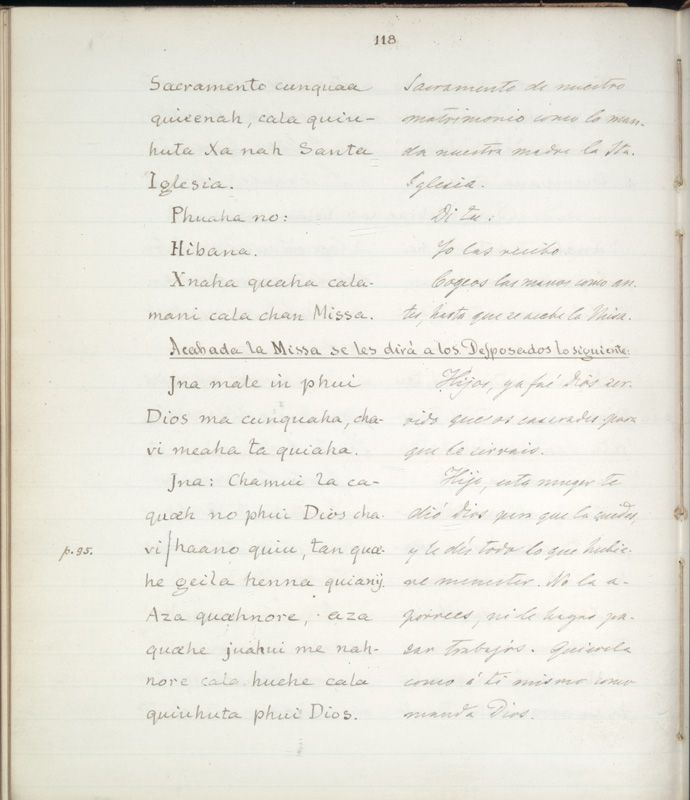 118
Sacramento cunquaa
quicenah, cala quiu-
huta Xa nah Santa
Iglesia.
Phuaha no:
Hibana.
Xnaha quaha cala-
mani cala chan Missa.
Sacramento de nuestro
matrimonio como lo man-
da nuestra madre la Sta.
Iglesia.
Di tu:
Yo las recibo
Cogeos las manos como an-
tes, hasta que se acabe la Misa.
Acabada la Missa se les dirá a los Desposados lo siguiente:
Jna male in phui
Dios ma cunquaha, cha-
vi meaha ta quiaha.
Jna: Chamui ra ca-
quæh no phui Dios cha-
p. 95.
vi/haano quiu, tan quæ-
he geila henna quianÿ.
Aza quæhnore, aza
quæhe juahui me nah-
nore cala huehe cala
quiuhuta phui Dios.
Hijos, ya fué Dios ser-
vido que os casarades para
que le sirvais.
Hijo, esta muger te
dió Dios para que la cuides,
y le dés todo lo que hubie-
re menester. No la a-
porrees, ni le hagas pa-
sar trabajos. Quierela
como á ti mismo como
manda Dios.